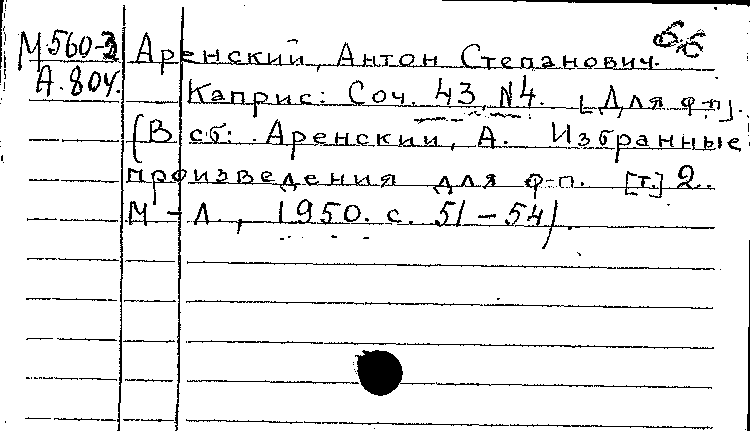 бб
М560-3 Аренский, Антон Степанович.
А.804. Каприс: Соч. 43, N4. [Для ф-п].
(В сб: Аренский, А. Избранные
произведения для ф-п. [т.] 2.
М-Л., 1950. с. 51-54).